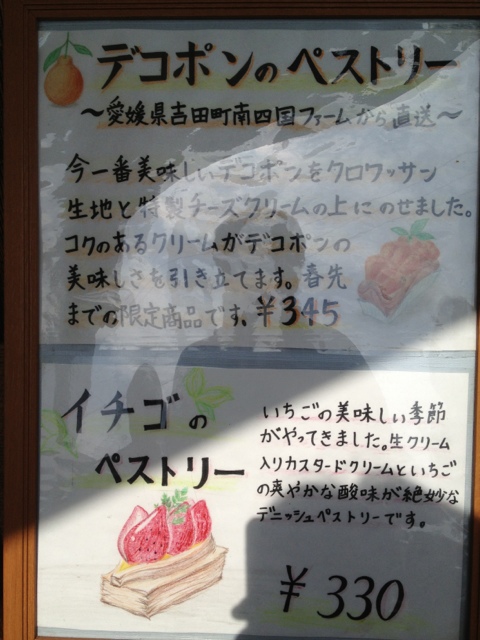 デコポンのペストリー
～愛媛県吉田町南四国ファームから直送～
今一番美味しいデコポンをクロワッサン
生地と特製チーズクリームの上にのせました。
コクのあるクリームがデコポンの
美味しさを引き立てます。春先
までの限定商品です。¥345
イチゴの
ペストリー
いちごの美味しい季節
がやってきました。生クリーム
入りカスタードクリームといちご
の爽やかな酸味が絶妙な
デニッシュペストリーです。
¥330